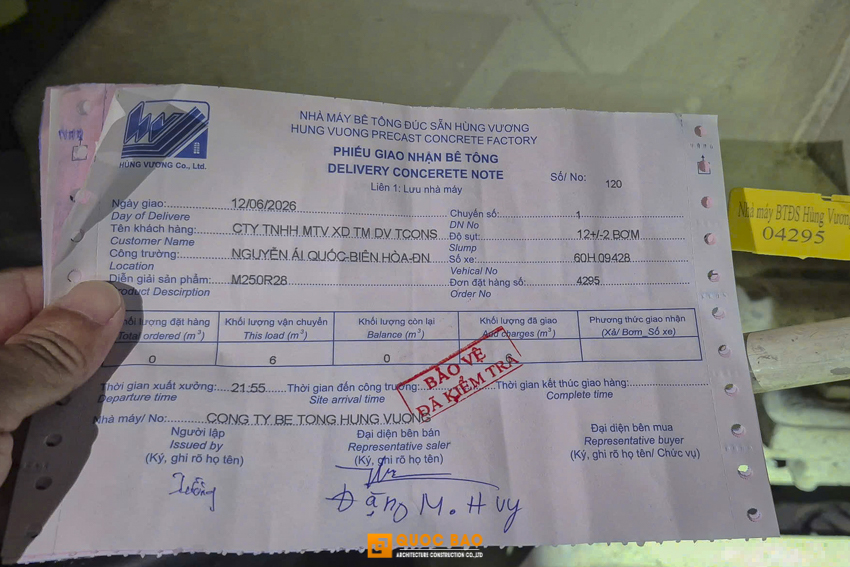 NHÀ MÁY BÊ TÔNG ĐÚC SẴN HÙNG VƯƠNG
HUNG VUONG PRECAST CONCRETE FACTORY
HÙNG VƯƠNG Co., Ltd.
PHIẾU GIAO NHẬN BÊ TÔNG
DELIVERY CONCERETE NOTE
Số/ No: 120
Liên 1: Lưu nhà máy
Ngày giao: 12/06/2026 Chuyến số: 1
Day of Delivere DN No
Tên khách hàng: CTY TNHH MTV XD TM DV TCONS Độ sụt: 12+/-2 BƠM
Customer Name Slump
Công trường: NGUYỄN ÁI QUỐC-BIÊN HÒA-ĐN Số xe: 60H 09428
Location Vehical No
Diễn giải sản phẩm: M250R28 Đơn đặt hàng số: 4295
Product Descirption Order No
khối lượng đặt hàng Khối lượng vận chuyển Khối lượng còn lại Khối lượng đã giao Phương thức giao nhận
Total ordered (m³) This load (m³) Balance (m³) Add charges (m³) (Xả/ Bơm_Số xe)
0 6 0 6
BẢO VỆ
ĐÃ KIỂM TRA
Thời gian xuất xưởng: 21:55 Thời gian đến công trường: Thời gian kết thúc giao hàng:
Departure time Site arrival time Complete time
Nhà máy/ No: CÔNG TY BE TONG HUNG VUONG
Người lập Đại diện bên bán Đại diện bên mua
Issued by Representative saler Representative buyer
(Ký, ghi rõ họ tên) (Ký, ghi rõ họ tên) (Ký, ghi rõ họ tên/ Chức vụ)
Đặng M. Huy
Nhà máy BTĐS Hùng Vương
04295
QUOC BAO
ARCHITECTURE CONSTRUCTION CO.,LTD